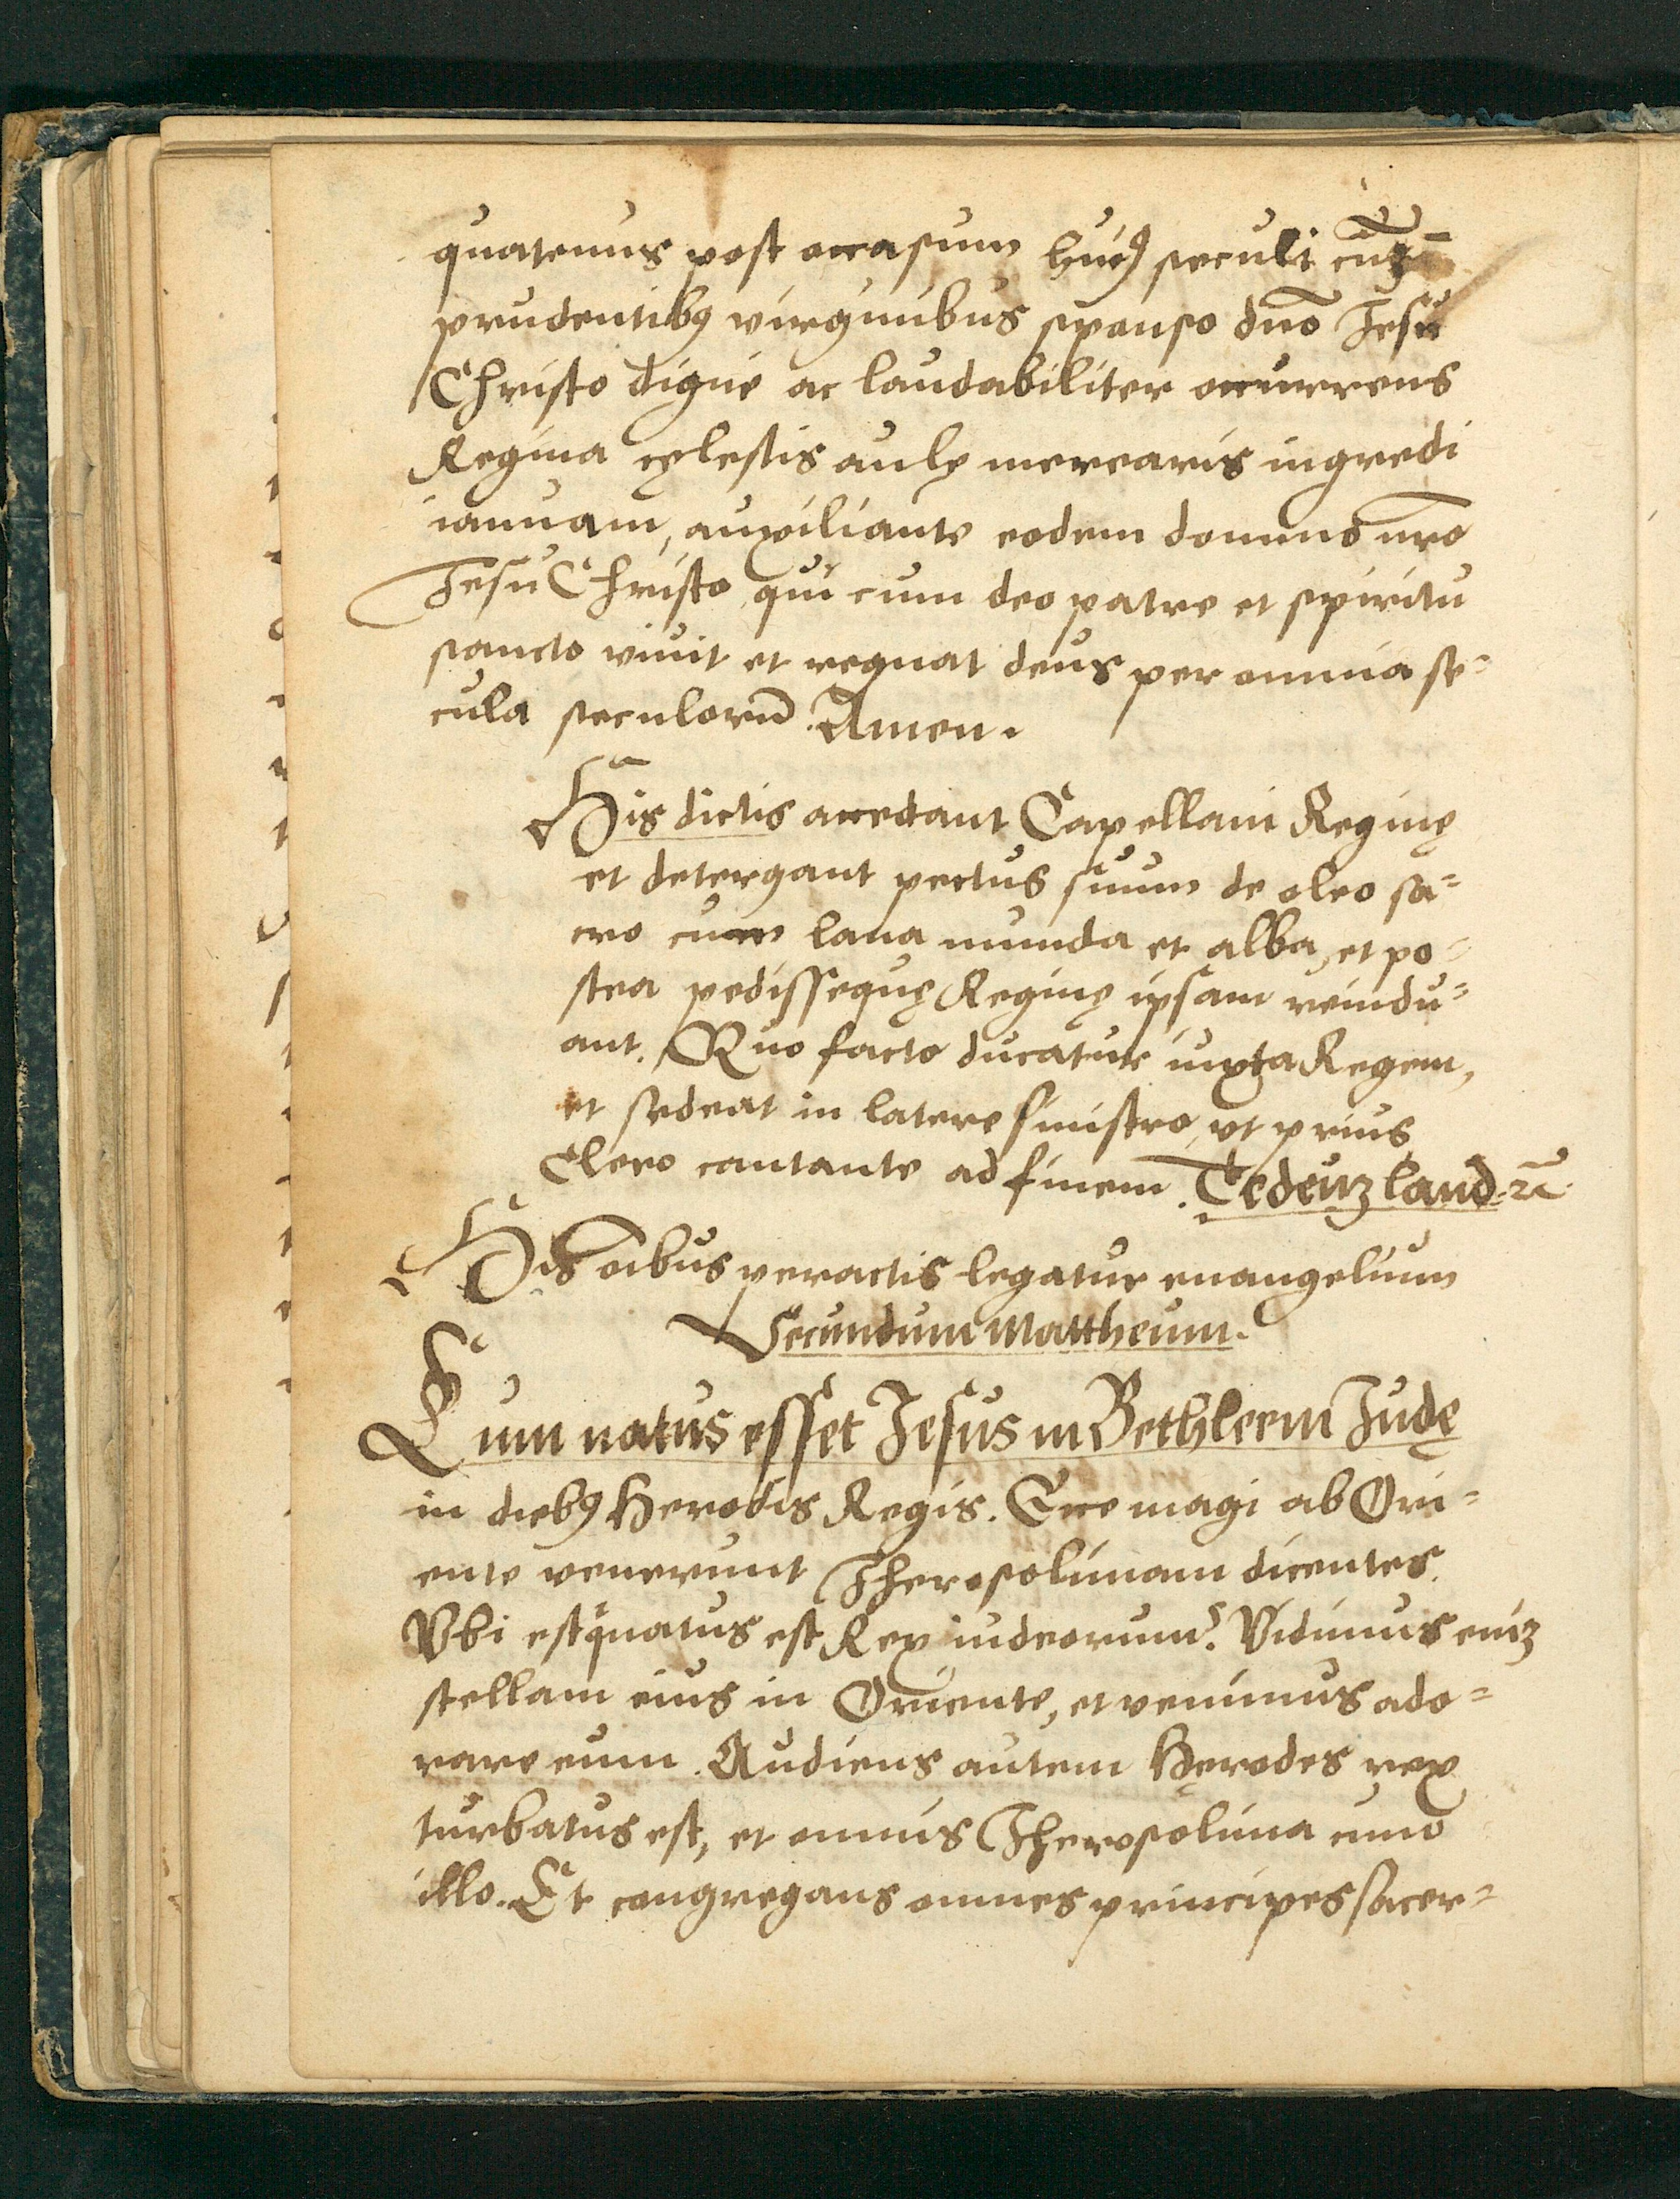 quatenus post occasum huiꝰ seculi cūʒ
prudentibꝰ virginibus sponso dn̄o Jesu
Christo digne ac laudabiliter occurrens
Regina cęlestis aulę merearis ingredi
ianuam, auxiliante eodem domino nr̄o
Jesu Christo qui cum deo patre et spiritu
sancto viuit et regnat deus per omnia se=
cula seculorū. Amen.
His dictis accedant Capellani Reginę
et detergant pectus suum de oleo sa=
cro cum lana munda et alba, et po=
stea pedissequę Reginę ipsam reindu=
ant. Quo facto ducatur iuxta Regem,
et sedeat in latere sinistro, vt prius
Clero cantante ad finem. Te deuʒ laud. ꝛc̄.
His oībus peractis legatur euangelium
Secundum Mattheum.
Cum natus esset Jesus in Bethleem Judę
in diebꝰ Herodis Regis. Ecce magi ab Ori=
ente venerunt Jherosolimam dicentes.
Vbi est q̇ natus est Rex iudeorum? Vidimus eniʒ
stellam eius in Oriente, et venimus ado=
rare eum. Audiens autem Hęrodes rex
turbatus est, et omnis Jherosolima cum
illo. Et congregans omnes principes sacer=